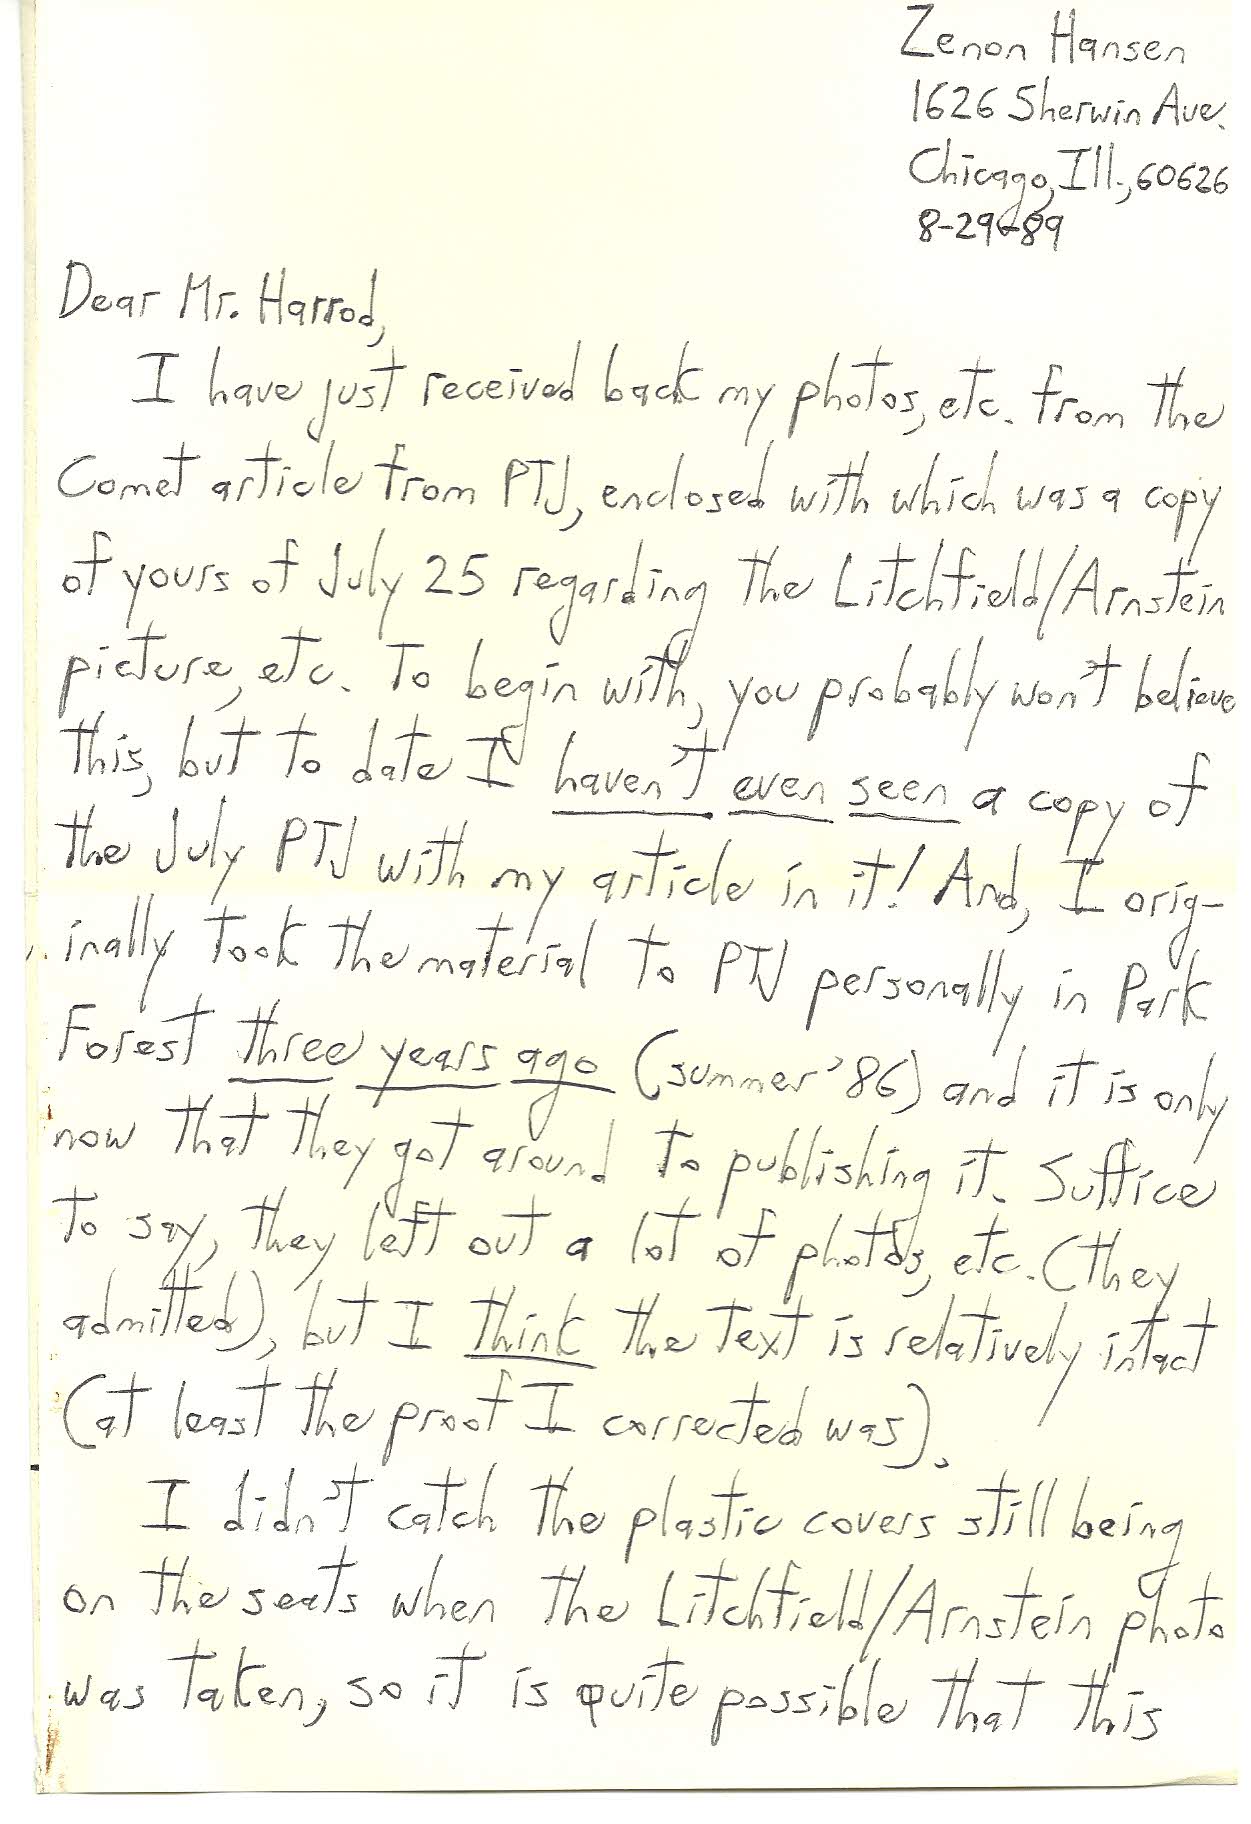 Zenon Hansen
1626 Sherwin Ave.
Chicago, Ill., 60626
8-29-89
Dear Mr. Harrod,
I have just received back my photos, etc. from the
Comet article from PTJ, enclosed with which was a copy
of yours of July 25 regarding the Litchfield/Arnstein
picture, etc. To begin with, you probably won't believe
this, but to date I haven't even seen a copy of
the July PTJ with my article in it! And, I orig-
inally took the material to PTJ personally in Park
Forest three years ago (summer '86) and it is only
now that they got around to publishing it. Suffice
to say, they left out a lot of photos, etc. (they
admitted), but I think the text is relatively intact
(at least the proof I corrected was).
I didn't catch the plastic covers still being
on the seats when the Litchfield/Arnstein photo
was taken, so it is quite possible that this